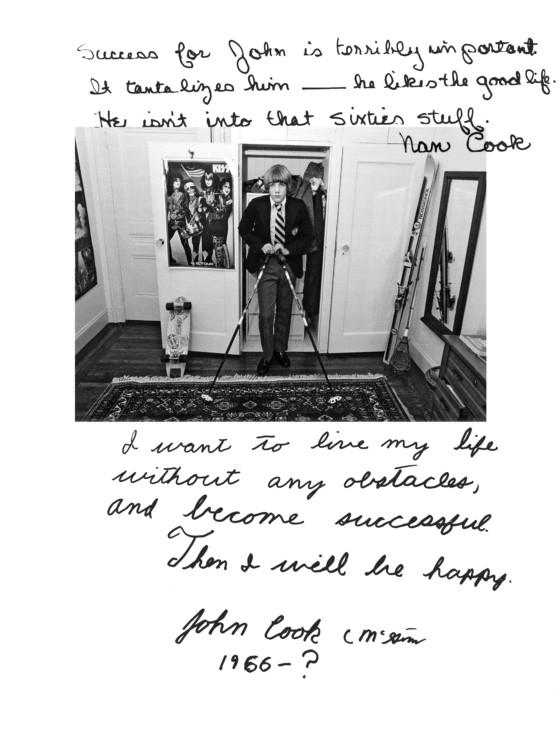 Success for John is terribly important.
It tantalizes him — he likes the good life.
He isn't into that sixties stuff.
Nan Cook
KISS
I want to live my life
without any obstacles,
and become successful.
Then I will be happy.
John Cook
1966 - ?